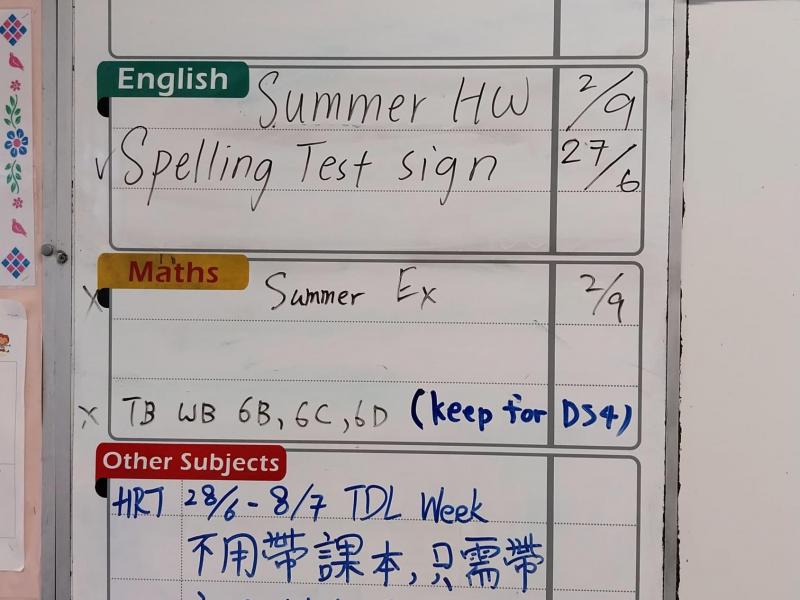 English
Summer HW 2/9
✓ Spelling Test sign 27/6
Maths
x Summer Ex 2/9
x TB WB 6B, 6C, 6D (keep for DS4)
Other Subjects
HRT 28/6 - 8/7 TDL Week
不用帶課本,只需帶